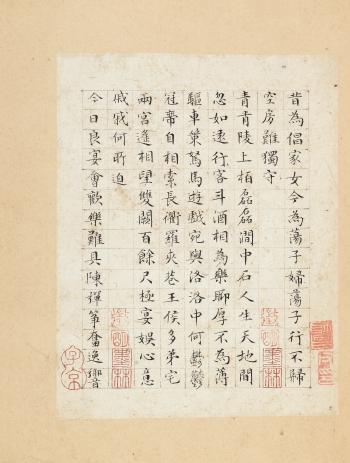 昔為倡家女今為蕩子婦蕩子行不歸
空房難獨守
青青陵上栢磊磊澗中石人生天地間
忽如遠行客斗酒相為樂聊厚不為薄
驅車策駑馬遊戲宛與洛洛中何鬱鬱
冠帶自相索長衢羅夾巷王侯多第宅
兩宮遙相望雙闕百餘尺極宴娛心意
戚戚何所迫
今日良宴會歡樂難具陳彈箏奮逸響
子京